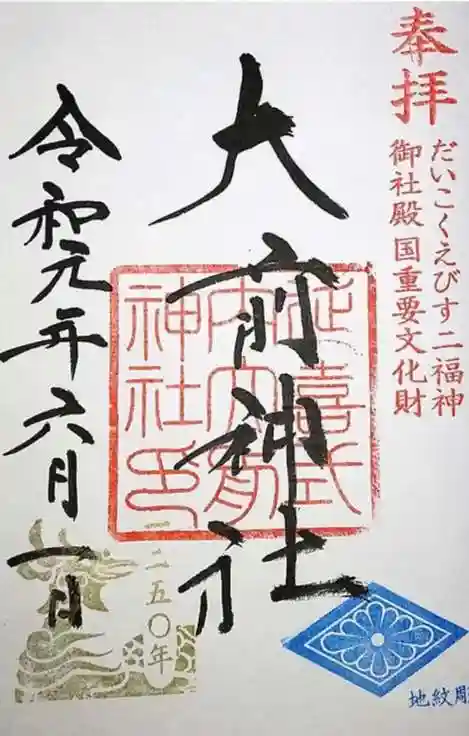 奉拝
だいこくえびす二福神
御社殿国重要文化財
大前神社
延喜式
内大前
神社印
令和元年六月一日
二五〇年
地紋彫